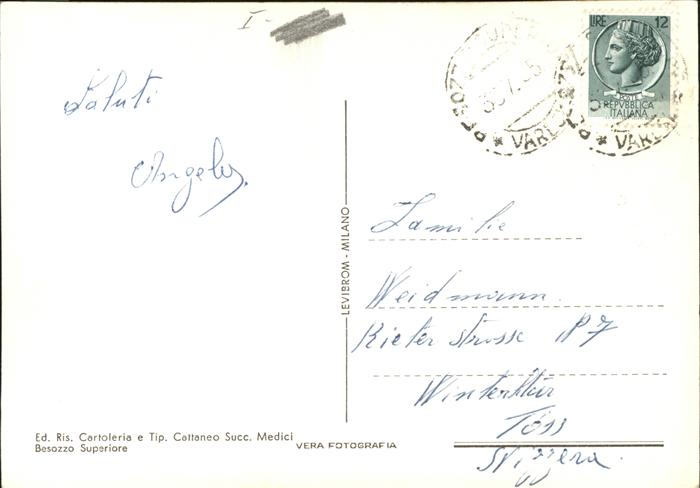 I-
LIRE 12
POSTE
REPVBBLICA
ITALIANA
BESOZZO
* VARESE *
Saluti
Angelo
LEVIBROM - MILANO
Familie
Weidmann
Rieter strasse
Winterthur
Töss
Svizzera.
Ed. Ris. Cartoleria e Tip. Cattaneo Succ. Medici
Besozzo Superiore
VERA FOTOGRAFIA